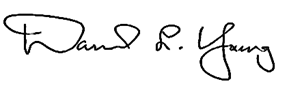 David L. Young